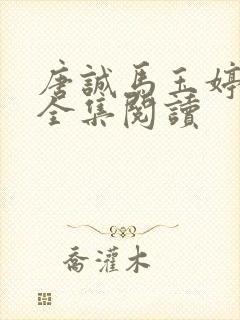 唐誠馬玉婷
全集閱讀
喬灌木